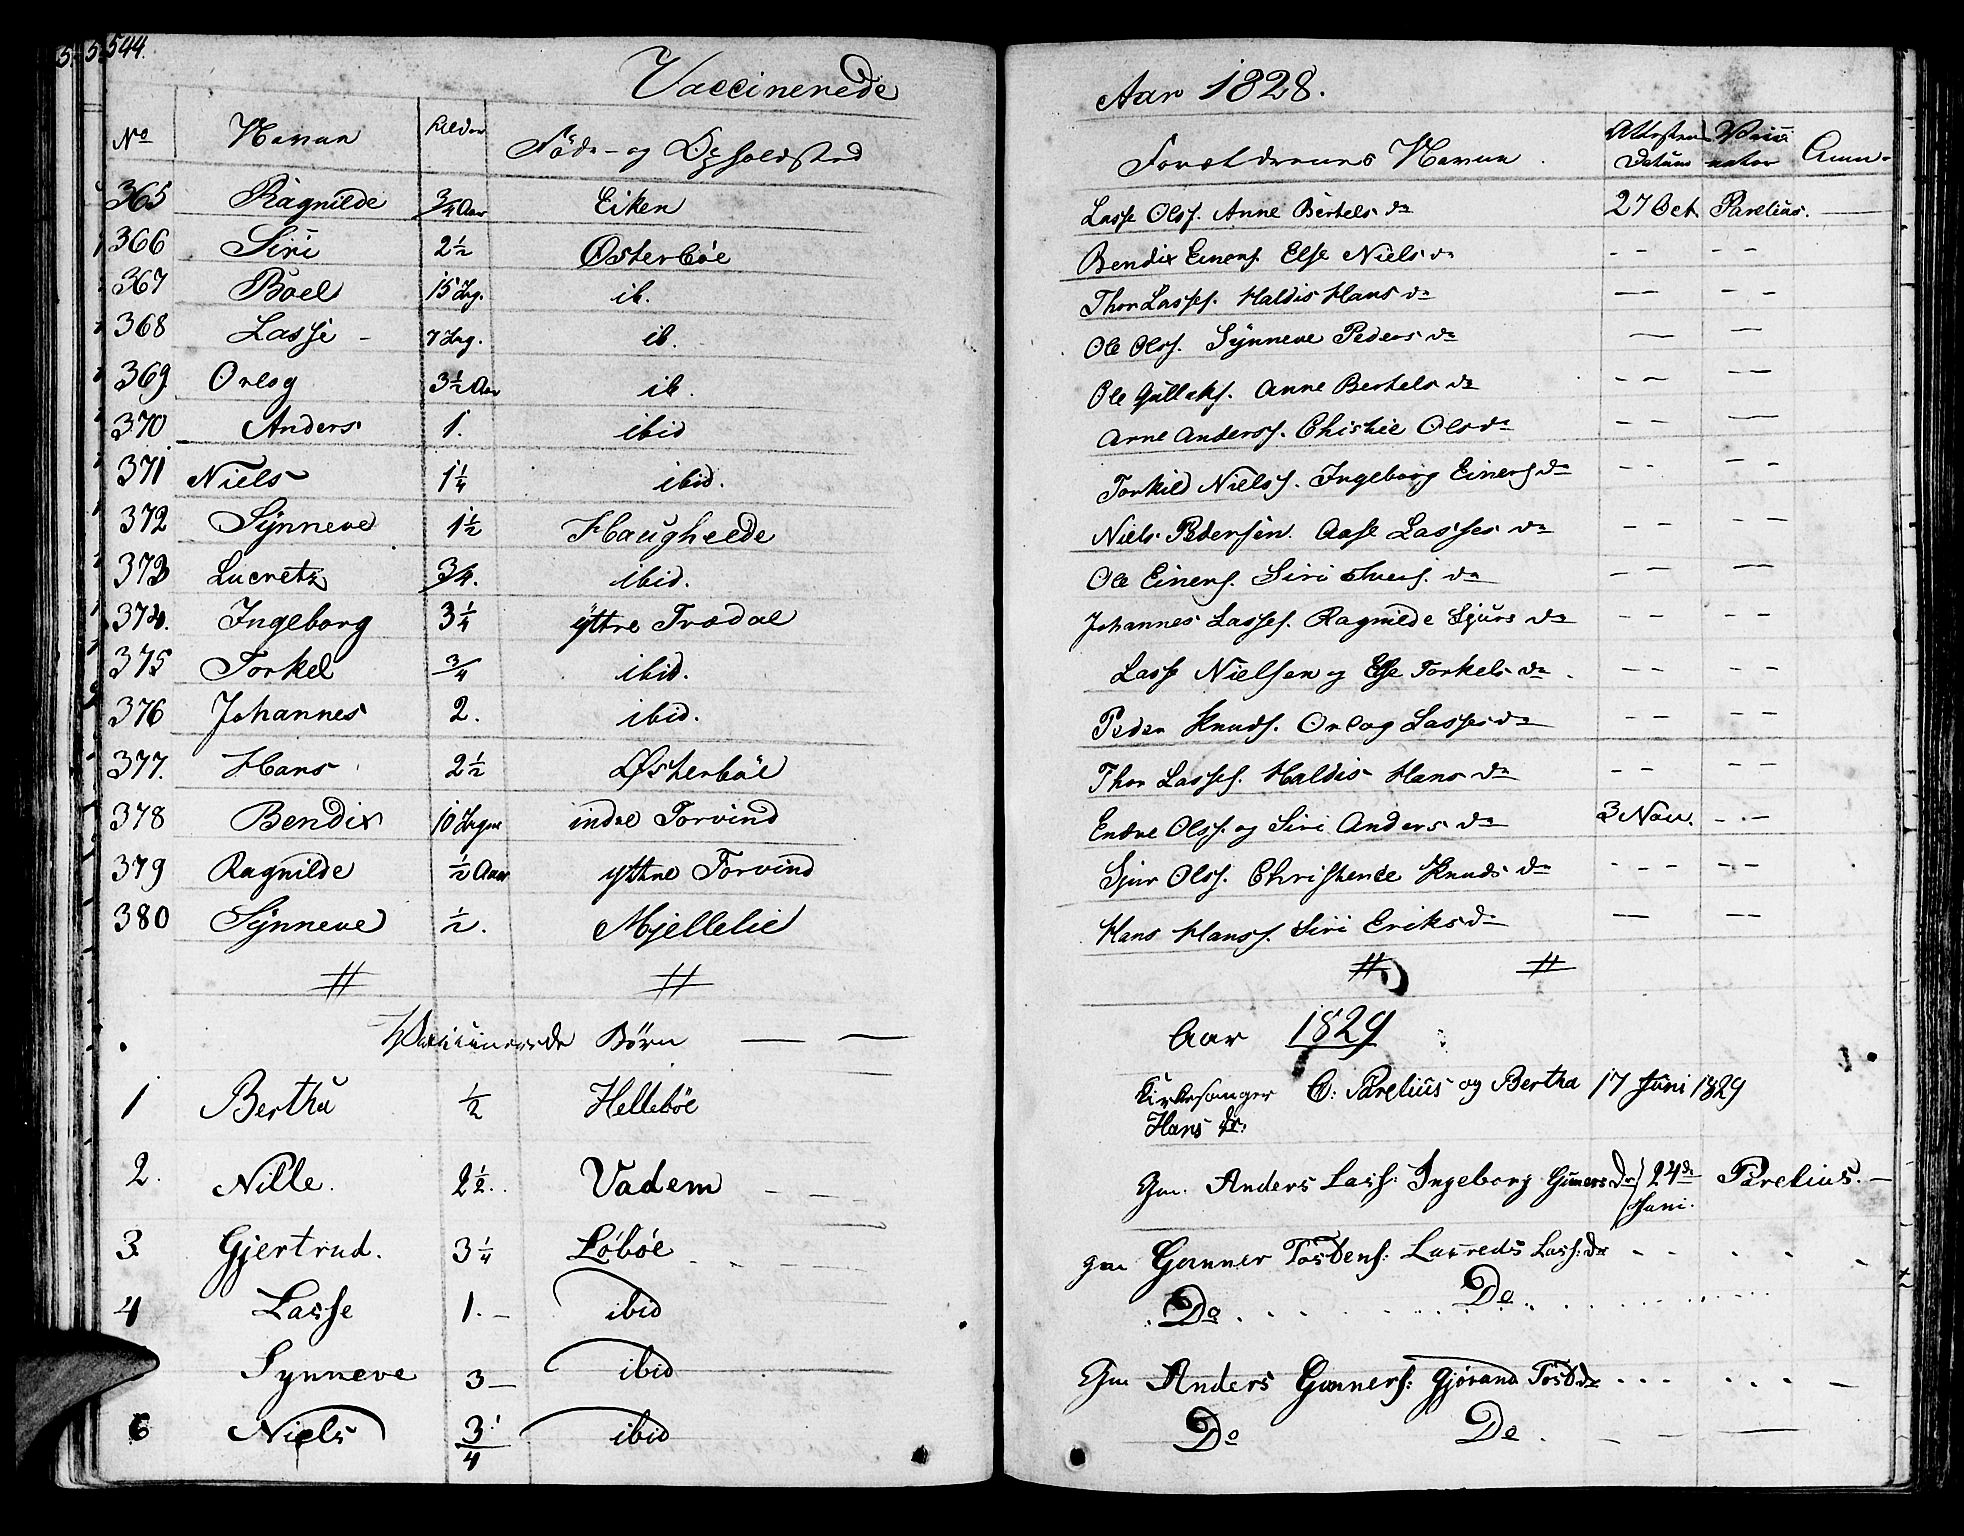 544.
Vaccinerede Aar 1828.
No Navne Alder Føde- og Opholdsted Forældrenes Navne Attestens Datum Vacci nator Anm.
365 Ragnilde 3/4 Aar Eiken Lasse Olss. Anne Bertels da 27 Oct Parelius. —
366 Siri 2 1/2 Østerbøe Bendix Einars. Else Niels da - - - -
367 Boel 15 Ug. ib. Thor Lasses. Haldis Hans da — — — —
368 Lasse - 7 Ug. ib. Ole Olss. Synneve Peders da — —
369 Orlog 3 1/2 Aar ib. Ole Gullaks. Anne Bertels da - - - -
370 Anders 1. ibid Arne Anderss. Christie Olsda - - - —
371 Niels 1 1/4 ibid. Torkild Nielss. Ingeborg Einersda - - - -
372 Synneve 1 1/2 Haugheede Niels Pedersen. Aase Lasses da - - - —
373 Lucretz 3/4. ibid. Ole Einers. Siri da - — —
374. Ingeborg 3 1/4 yttre Trædal Johannes Lasses. Ragnilde Sjurs da - - - -
375 Torkel 3/4 ibid. Lasse Nielsen og Else Torkels da. - - - -
376 Johannes 2. ibid. Peder Knuds. Orlog Lassesda - - - -
377. Hans 2 1/2 Østerbøe Thor Lasses. Haldis Hans da - - - -
378 Bendix 10 Uger indre Torvind Endre Olss. og Siri Anders da 3 Nov. - - -
379 Ragnilde 1/2 Aar yttre Torvind Sjur Olss. Christence Knuds da - - - - -
380 Synneve 1/2. Mjellelie Hans Hanss. Siri Eriksda — - -
# # # #
Vaccinerede Børn — — Aar 1829
1 Bertha 1/2 Hellebøe Kirkesanger C: Parelius og Bertha 17 Juni 1829
Hans dr:
2. Nille. 2 1/2. Vadem - - Gm. Anders Lass: Ingeborg Gunersda 24de Parelius. -
Juni.
3. Gjertrud. 3 1/4 Løbøe gm Gunner Tostens: Lass:da - - - -
4 Lasse 1. - ibid Do Do
Synneve 3 - ibid Gm Anders Gunners: Gjørand Tostda - - - - - - —
6 Niels 3/4 ibid Do De. - - —